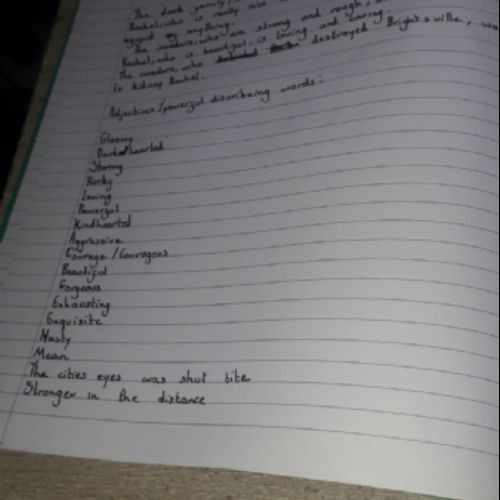 The dark family,
Rachel, who is really nice
of anything.
The invaders, who are strong and rough,
Rachel, who is beautiful, is loving and caring.
The invaders, who destroyed Brightsville,
to kidnap Rachel.
Adjectives/powerful discribeing words:
Gloomy
Darkhearted
Stormy
Rocky
Loving
Powerful
Kindhearted
Aggressive
Courage / Couragous
Beautiful
Gorgeous
Exhausting
Exquisite
Nasty
Mean
The cities eyes was shut tite
Stranger in the distance